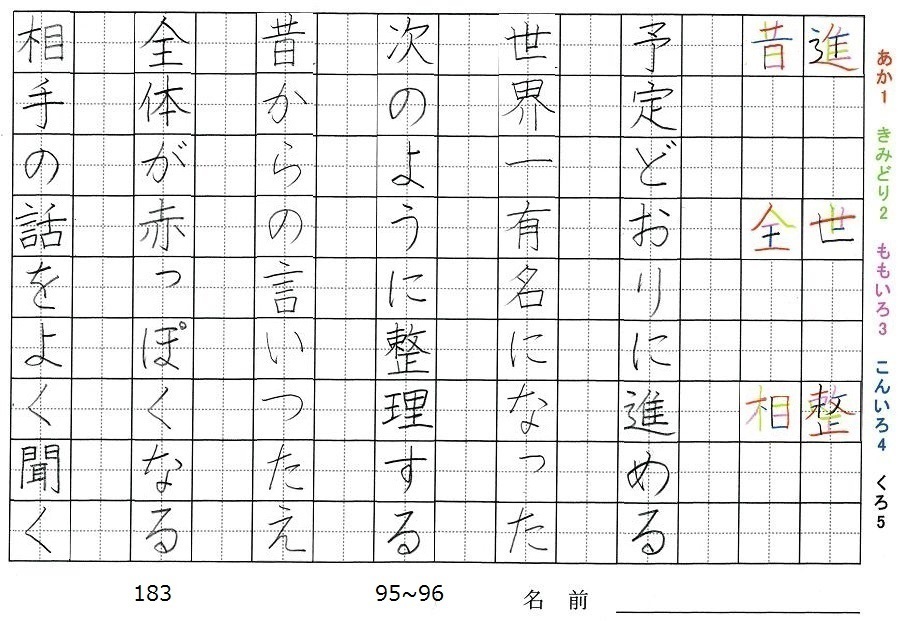 あか1 きみどり2 ももいろ3 こんいろ4 くろ5
進 世 整
昔 全 相
予定どおりに進める
世界一有名になった
次のように整理する
昔からの言いつたえ
全体が赤っぽくなる
相手の話をよく聞く
名前
95~96
183